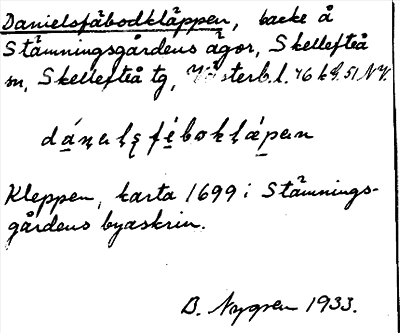 Danielsfäbodkläppen, backe å
Stämningsgårdens ägor, Skellefteå
sn, Skellefteå tg, Västerb. l. 46 k 9. 51 NV.
Kleppen, karta 1699 i Stämnings-
gårdens byaskrin.
B. Nygren 1933.